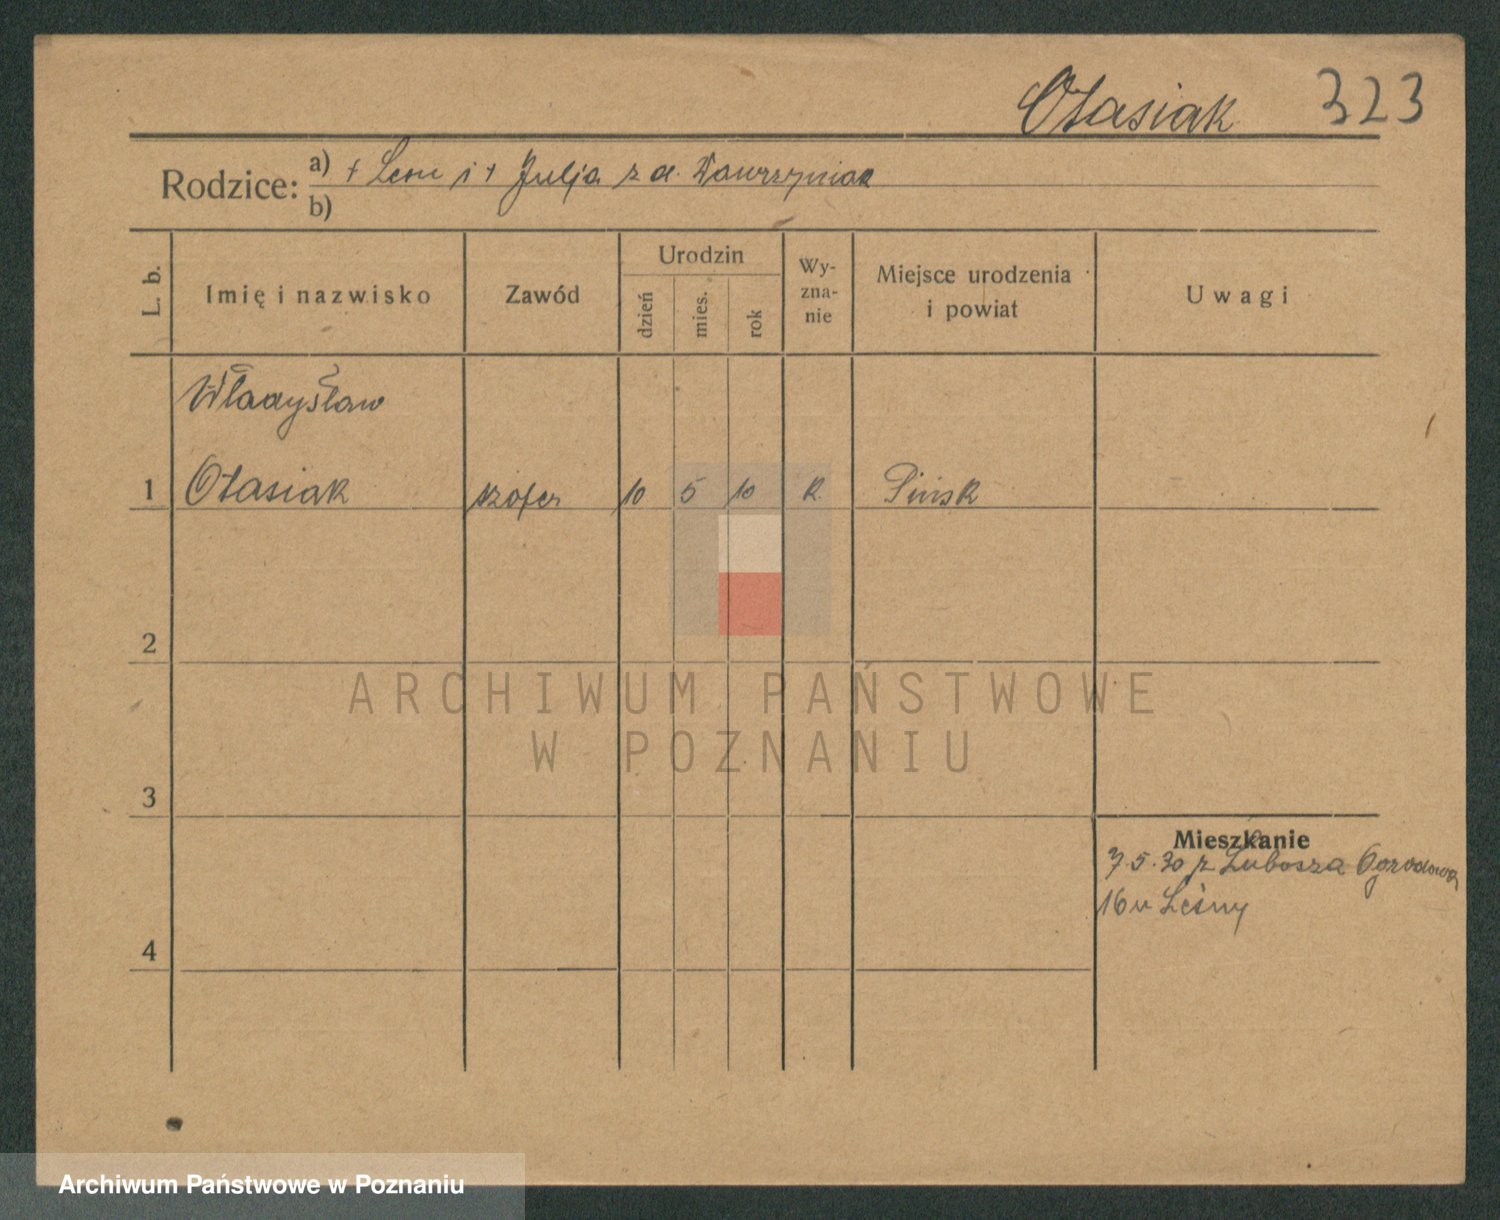 Otasiak 323
Rodzice: a) + Leon i + Julja z d. Wawrzyniak
b)
L. b. Imię i nazwisko Zawód Urodzin dzień mies. rok Wy-zna-nie Miejsce urodzenia i powiat Uwagi
Władysław
1 Otasiak szofer 10 5 10 k. Pińsk
2
ARCHIWUM PAŃSTWOWE
W POZNANIU
3
Mieszkanie
7.5.30 z Lubosza Ogrodowa
16 u Leśny
4
Archiwum Państwowe w Poznaniu